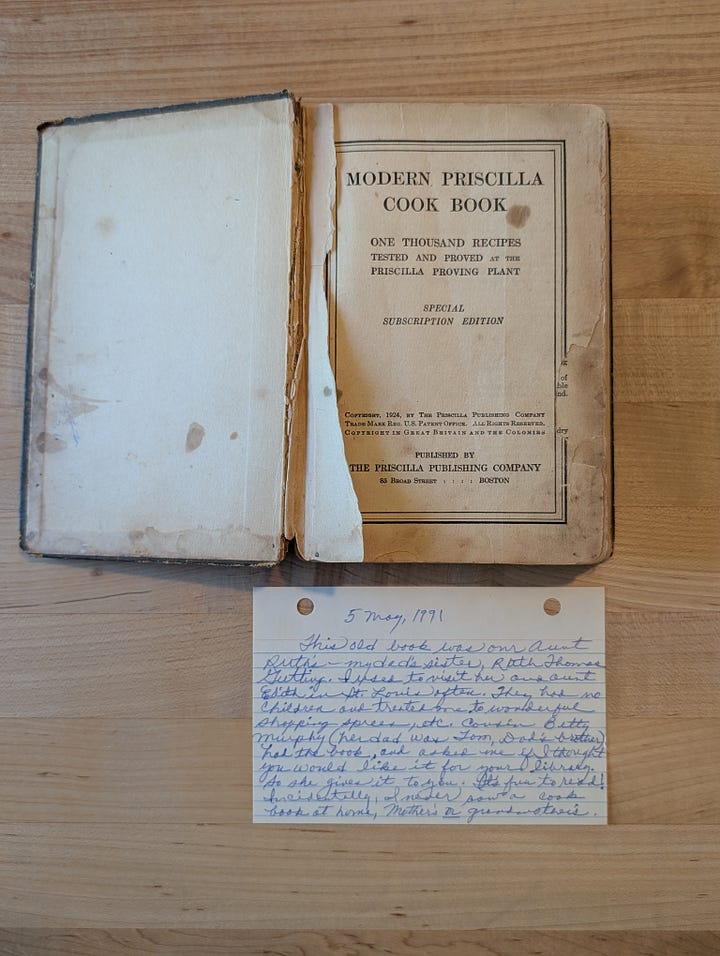 MODERN PRISCILLA
COOK BOOK
ONE THOUSAND RECIPES
TESTED AND PROVED AT THE
PRISCILLA PROVING PLANT
SPECIAL
SUBSCRIPTION EDITION
of
nd.
dry
COPYRIGHT, 1924, BY THE PRISCILLA PUBLISHING COMPANY
TRADE MARK REG. U.S. PATENT OFFICE. ALL RIGHTS RESERVED.
COPYRIGHT IN GREAT BRITAIN AND THE COLONIES
PUBLISHED BY
THE PRISCILLA PUBLISHING COMPANY
85 BROAD STREET : : : : BOSTON
5 May, 1991
This old book was our Aunt
Ruth's - my dad's sister, Ruth Thomas
Gutting. I used to visit her and aunt
Edith in St. Louis often. They had no
children and treated me to wonderful
shopping sprees, etc. Cousin Betty
Murphy (her dad was Tom, Dad's brother)
had the book, and asked me if I thought
you would like it for your library.
So she gives it to you. It's fun to read!
Incidentally, I never saw a cook
book at home, Mother's or grandmother's.